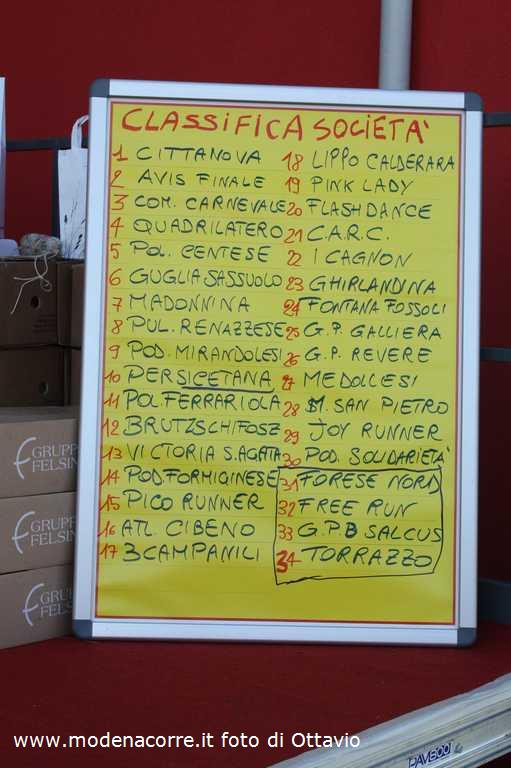 CLASSIFICA SOCIETA'
1 CITTANOVA
2 AVIS FINALE
3 COM. CARNEVALE
4 QUADRILATERO
5 POL. CENTESE
6 GUGLIA SASSUOLO
7 MADONNINA
8 PUL. RENAZZESE
9 POD. MIRANDOLESI
10 PERSICETANA
11 POL. FERRARIOLA
12 BRUTZSCHIFOSZ
13 VICTORIA S. AGATA
14 POD. FORMIGINESE
15 PICO RUNNER
16 ATL. CIBENO
17 3 CAMPANILI
18 LIPPO CALDERARA
19 PINK LADY
20 FLASHDANCE
21 C.A.R.C.
22 I CAGNON
23 GHIRLANDINA
24 FONTANA FOSSOLI
25 G.P. GALLIERA
26 G.P. REVERE
27 MEDOLLESI
28 M. SAN PIETRO
29 JOY RUNNER
30 POD. SOLIDARIETA'
31 FORESE NORD
32 FREE RUN
33 G.P.B SALCUS
34 TORRAZZO
GRUPP
FELSIN
GRUPP
FELSIN
GRUPP
FELSIN
www.modenacorre.it foto di Ottavio